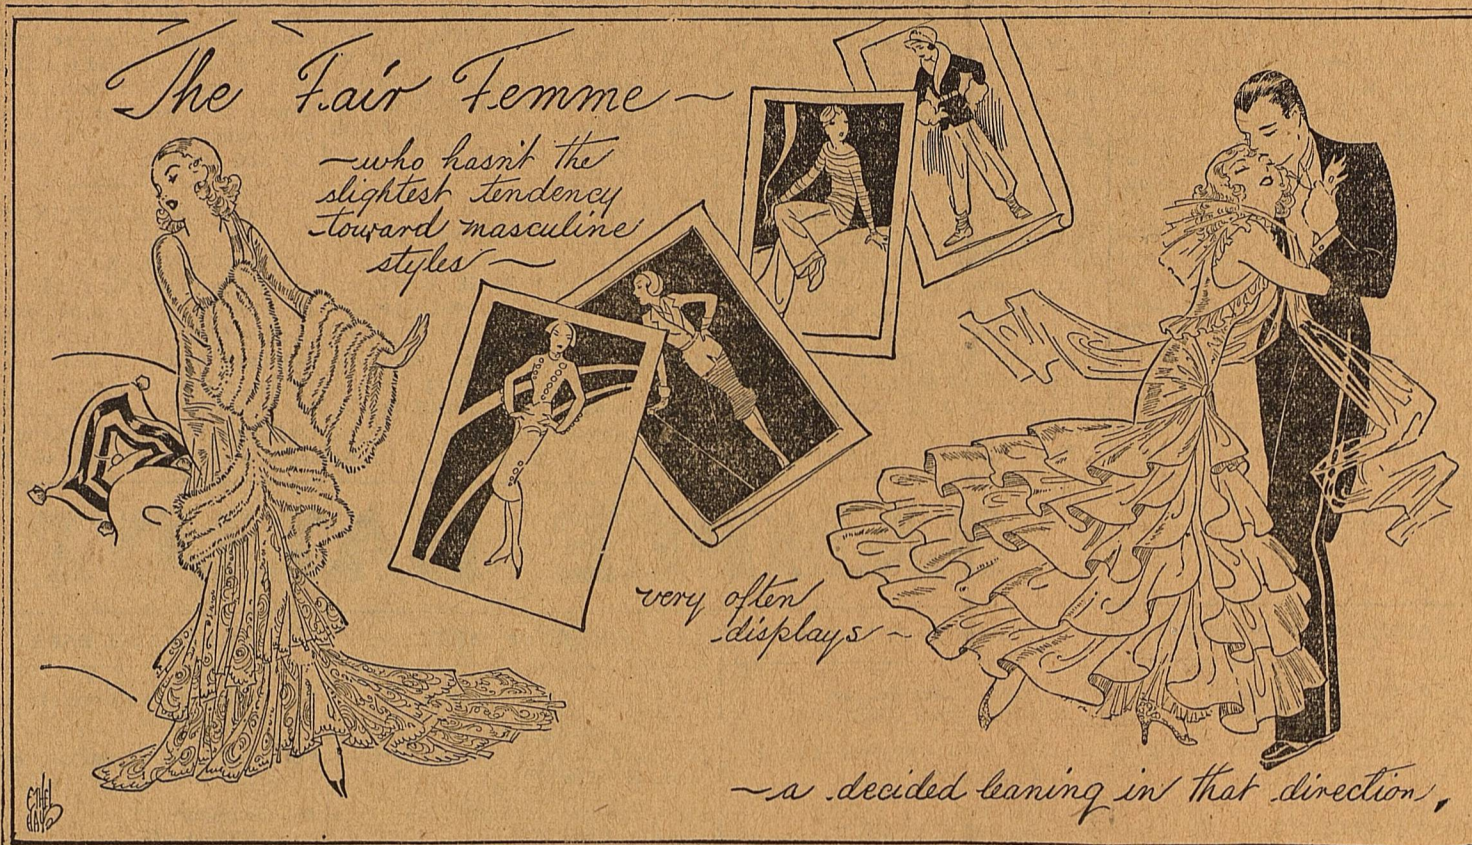 The Fair Femme—
—who hasn't the
slightest tendency
toward masculine
styles—
very often
displays—
—a decided leaning in that direction.
ETHEL
HAYS